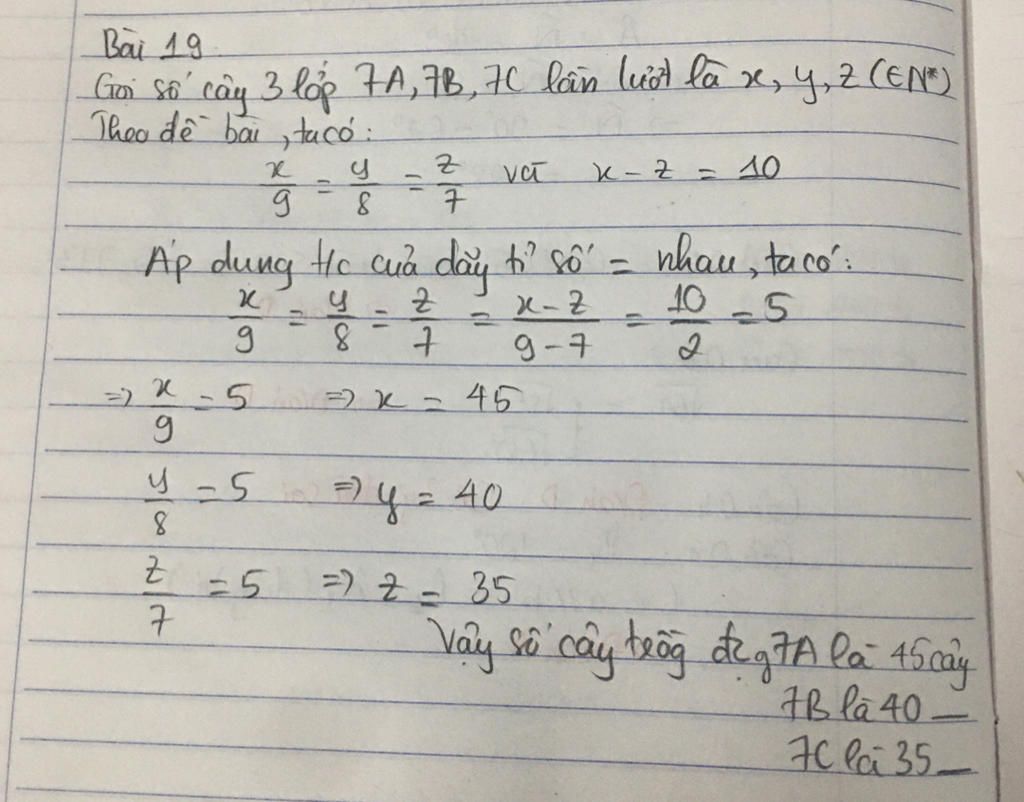 Bài 19
Gọi số cây 3 lớp 7A, 7B, 7C lần lượt là x, y, z (∈N*)
Theo đề bài, ta có:
x/9 = y/8 = z/7 và x - z = 10
Áp dụng t/c của dãy tỉ số = nhau, ta có:
x/9 = y/8 = z/7 = x-z/9-7 = 10/2 = 5
=> x/9 = 5 => x = 45
y/8 = 5 => y = 40
z/7 = 5 => z = 35
Vậy số cây trồg đc 7A là 45 cây
7B là 40 —
7C là 35 —